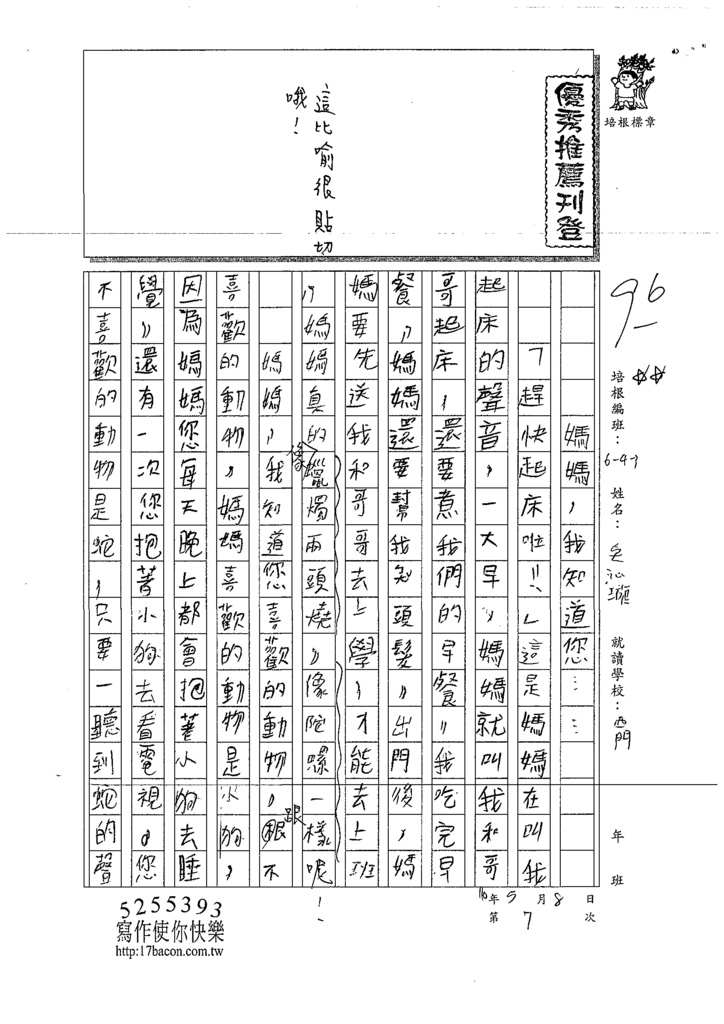 優秀推薦刊登
這比喻很貼切
哦!
培根標章
96
培根編班:6-47 姓名: 就讀學校:西門 年 班
媽媽,我知道您……
「趕快起床啦!!」這是媽媽在叫我
起床的聲音,一大早,媽媽就叫我和哥
哥起床,還要煮我們的早餐,我吃完早
餐,媽媽還要幫我頭髮,出門後,媽
媽要先送我和哥哥去上學,才能去上班
,媽媽真的像蠟燭兩頭燒,像陀螺一樣呢!
媽媽,我知道您喜歡的動物,跟不
喜歡的動物,媽媽喜歡的動物是小狗,
因為媽媽您每天晚上都會抱著小狗去睡
覺,還有一次您抱著小狗去看電視,您
不喜歡的動物是蛇,只要一聽到蛇的聲
110年5月8日
第7次
5255393
寫作使你快樂
http:17bacon.com.tw